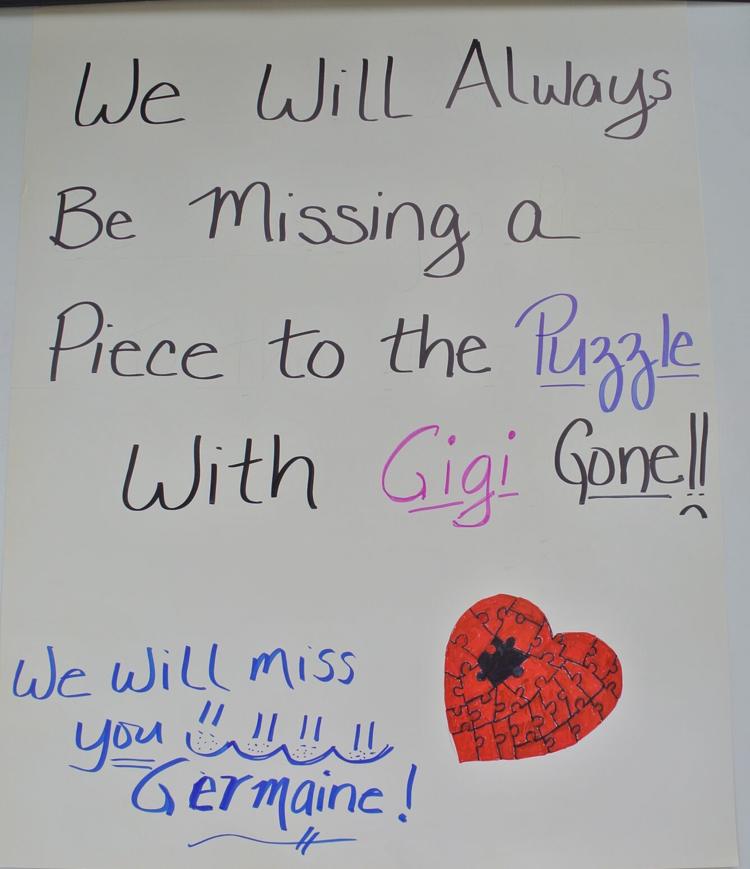 We Will Always
Be Missing a
Piece to the Puzzle
With Gigi Gone!!
We will miss
you !! !! !! !!
Germaine!